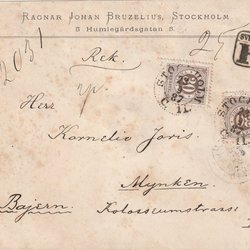 RAGNAR JOHAN BRUZELIUS, STOCKHOLM
5 Humlegårdsgatan 5
2031
Rek.
Herr
Kornelio Joris.
Mynken.
Bayern.
Kolosseumstrasse
STOCKHOLM
87